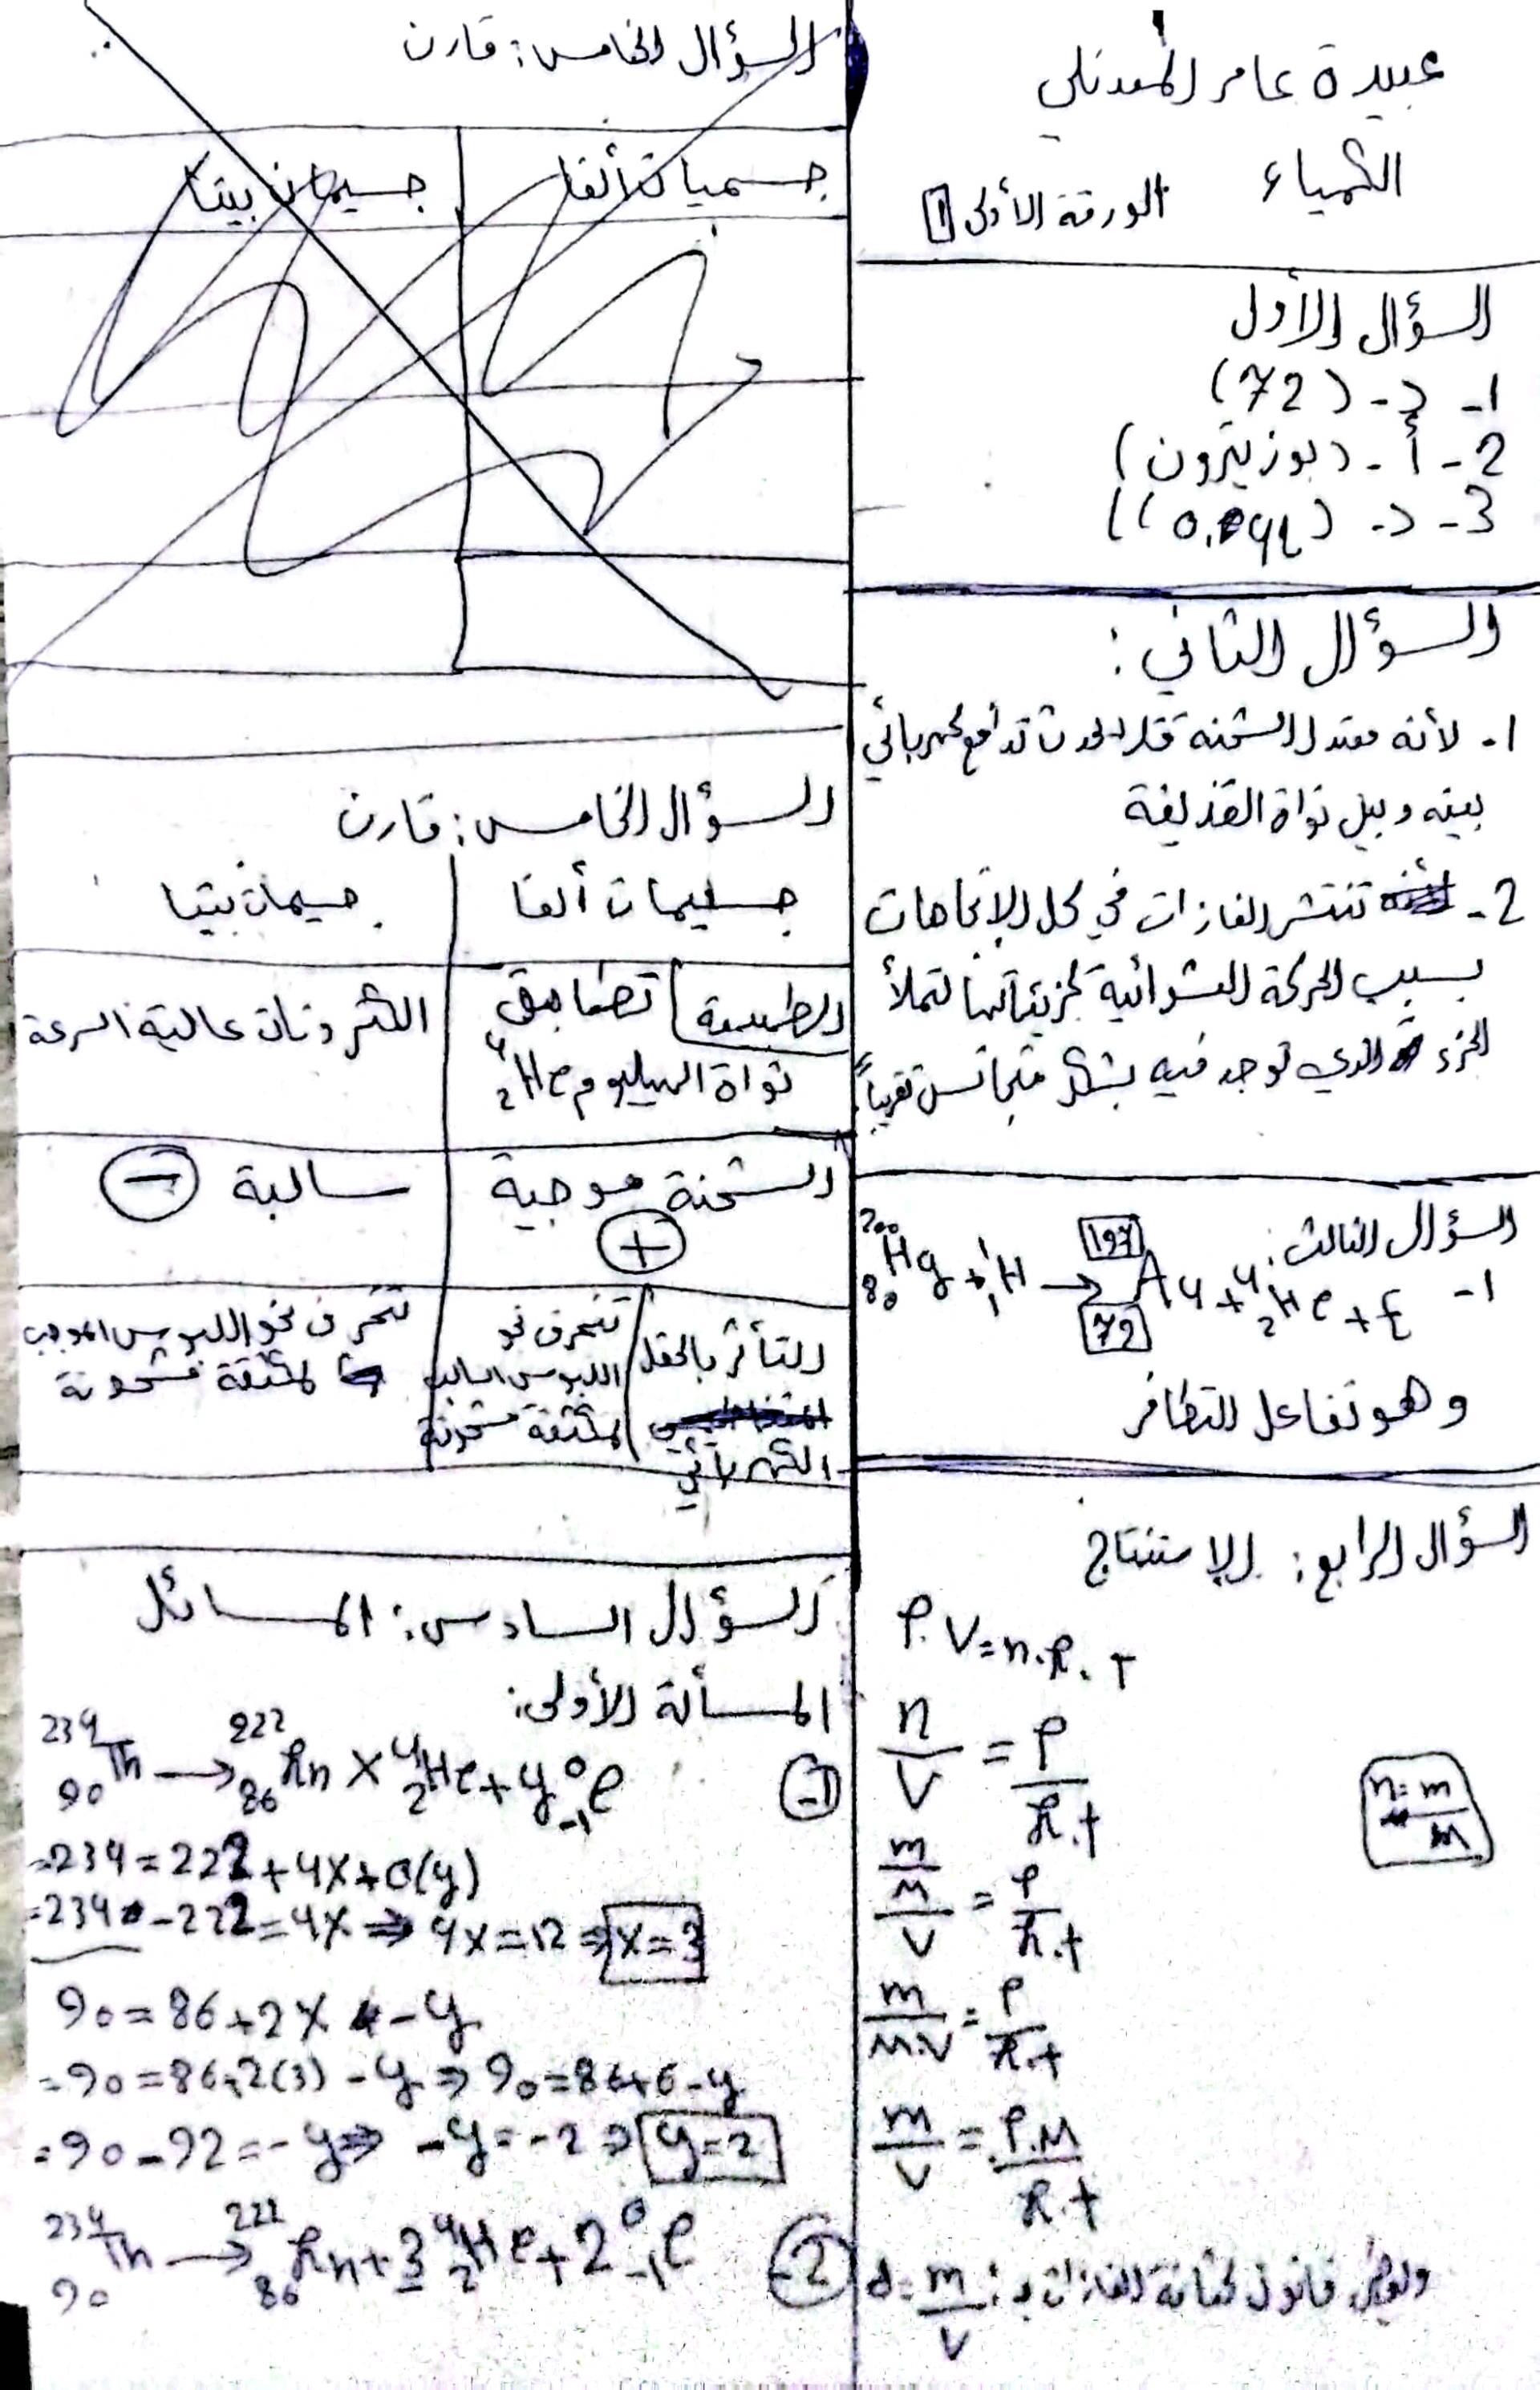 عبيدة عامر المعدنلي
الكمياء
الورقة الأولى 1
السؤال الأول
1- د- (72)
2- أ- (بوزيترون)
3- د- (
السؤال الثاني:
1- لأنه معتدل الشحنة فلا يحدث تدافع كهربائي
بينه وبين نواة القذيفة
2- تنتشر الغازات في كل الاتجاهات
بسبب الحركة العشوائية لجزيئاتها لتملأ
الجزء الذي توجد فيه بشكل متجانس تقريباً.
السؤال الثالث:
1- ²⁰⁰₈₀Hg + ¹₁H → ¹⁹⁷₇₉Au + ⁴₂He + E
وهو تفاعل التطافر
السؤال الرابع: الإستنتاج
P.V=n.R.T
n/V = P/R.t
n=m/M
m/M/V = P/R.t
m/M.V = P/R.t
m/V = P.M/R.t
قانون كثافة الغازات بـ: d=m/V
السؤال الخامس: قارن
جسميات ألفا
جسيمات بيتا
السؤال الخامس: قارن
جسيمات ألفا
جسيمات بيتا
الطبيعة
تطابق
نواة الهيليوم ⁴₂He
الكترونات عالية السرعة
الشحنة
موجبة +
سالبة −
التأثر بالحقل
الكهربائي
تنحرف نحو
اللبوس السالب
لمكثفة مشحونة
تنحرف نحو اللبوس الموجب
لمكثفة مشحونة
السؤال السادس: المسائل
المسألة الأولى:
1- ²³⁴₉₀Th → ²²²₈₆Rn x ⁴₂He + y ⁰₋₁e
=234=222+4x+0(y)
=234-222=4x ⇒ 4x=12 ⇒ x=3
90=86+2x-y
=90=86+2(3)-y ⇒ 90=86+6-y
=90-92=-y ⇒ -y=-2 ⇒ y=2
2- ²³⁴₉₀Th → ²²²₈₆Rn + 3 ⁴₂He + 2 ⁰₋₁e